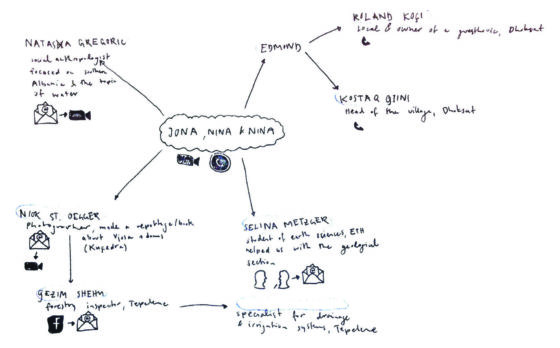 NATASHA GREGORIC
social anthropologist
focused on southern
Albania & the topic
of water
EDMOND
ROLAND KOFI
Local & owner of a guesthouse, Dhoksat
KOSTAQ GJINI
Head of the village, Dhoksat
JONA, NINA & NINA
NICK ST. OEGGER
Photographer, made a
about Vjosa & dams
(Kuçedra)
SELINA METZGER
student of earth sciences, ETH
helped us with the geological
section
GEZIM SHEHU
forestry inspector, Tepelene
f
specialist for drainage
& irrigation systems, Tepelene